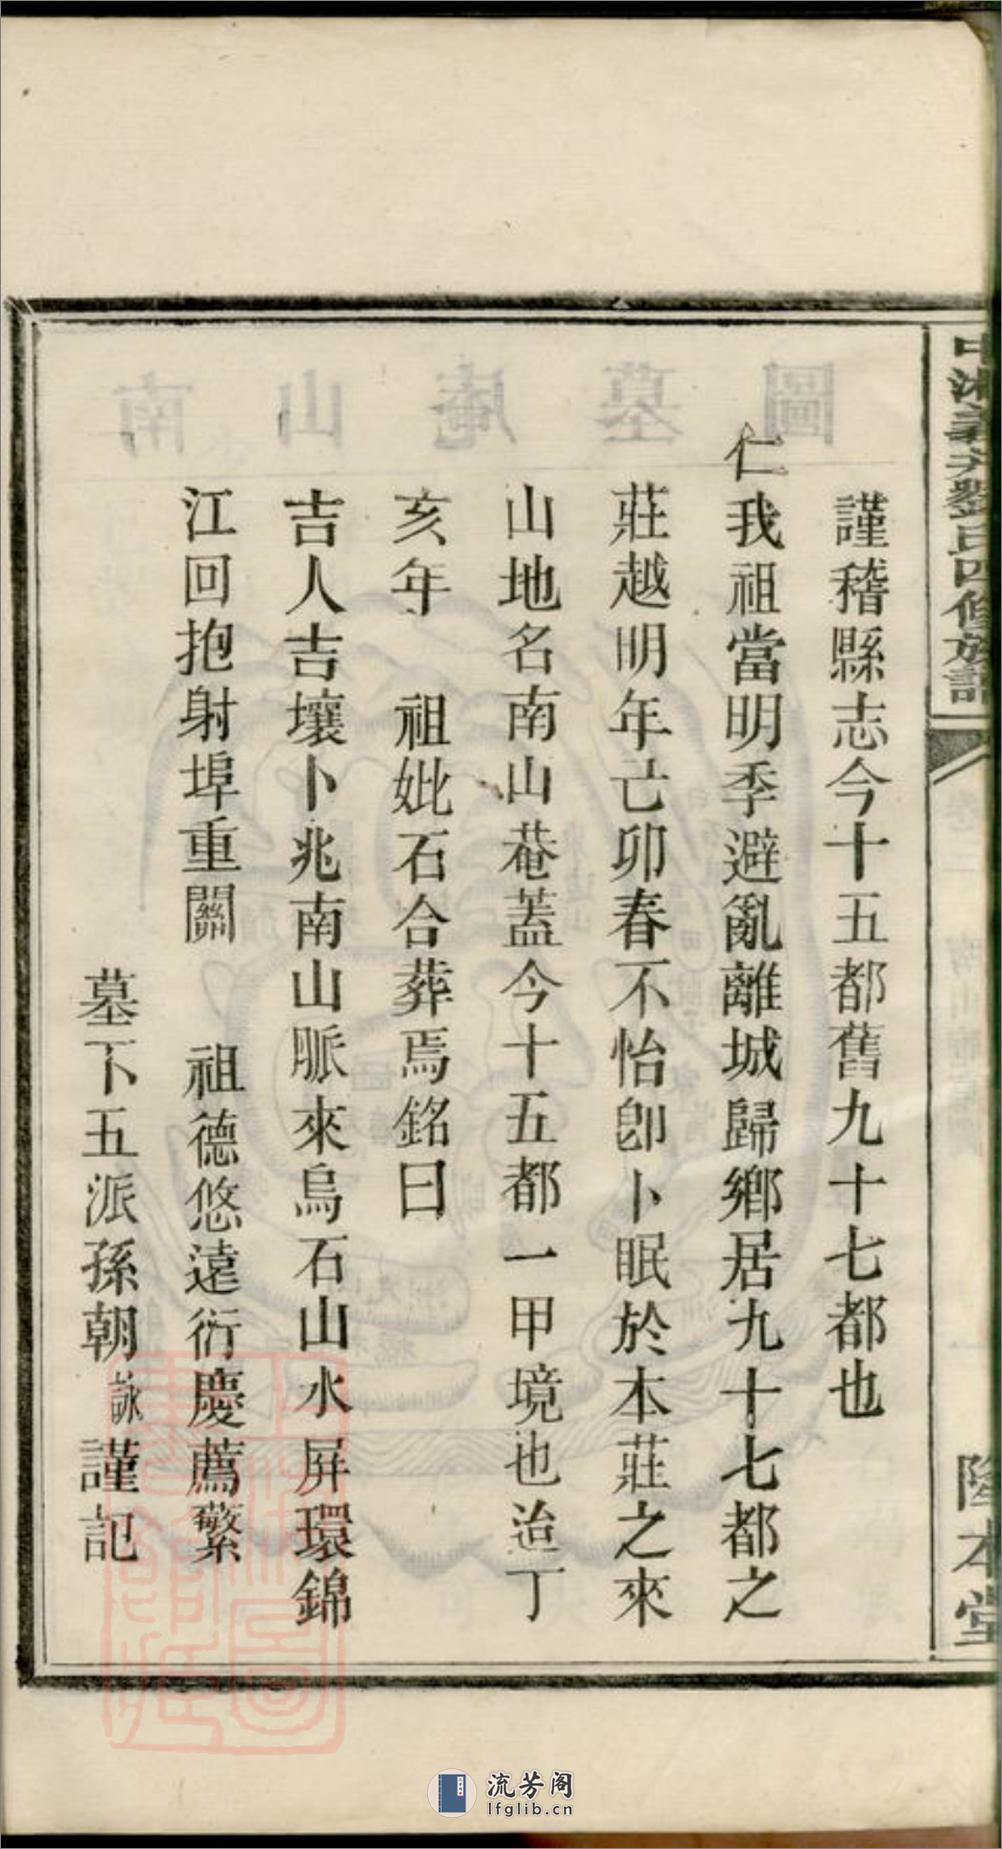 中湘義井劉氏四修族譜
陔本堂
謹稽縣志今十五都舊九十七都也
仁我祖當明季避亂離城歸鄉居九十七都之
莊越明年亡卯春不怡卽卜眠於本莊之來
山地名南山菴蓋今十五都一甲境也迨丁
亥年　祖妣石合葬焉銘曰
吉人吉壤卜兆南山脈來烏石山水屏環錦
江回抱射埠重關　祖德悠遠衍慶薦繁
墓下五派孫朝詠謹記
流芳阁
lfglib.cn